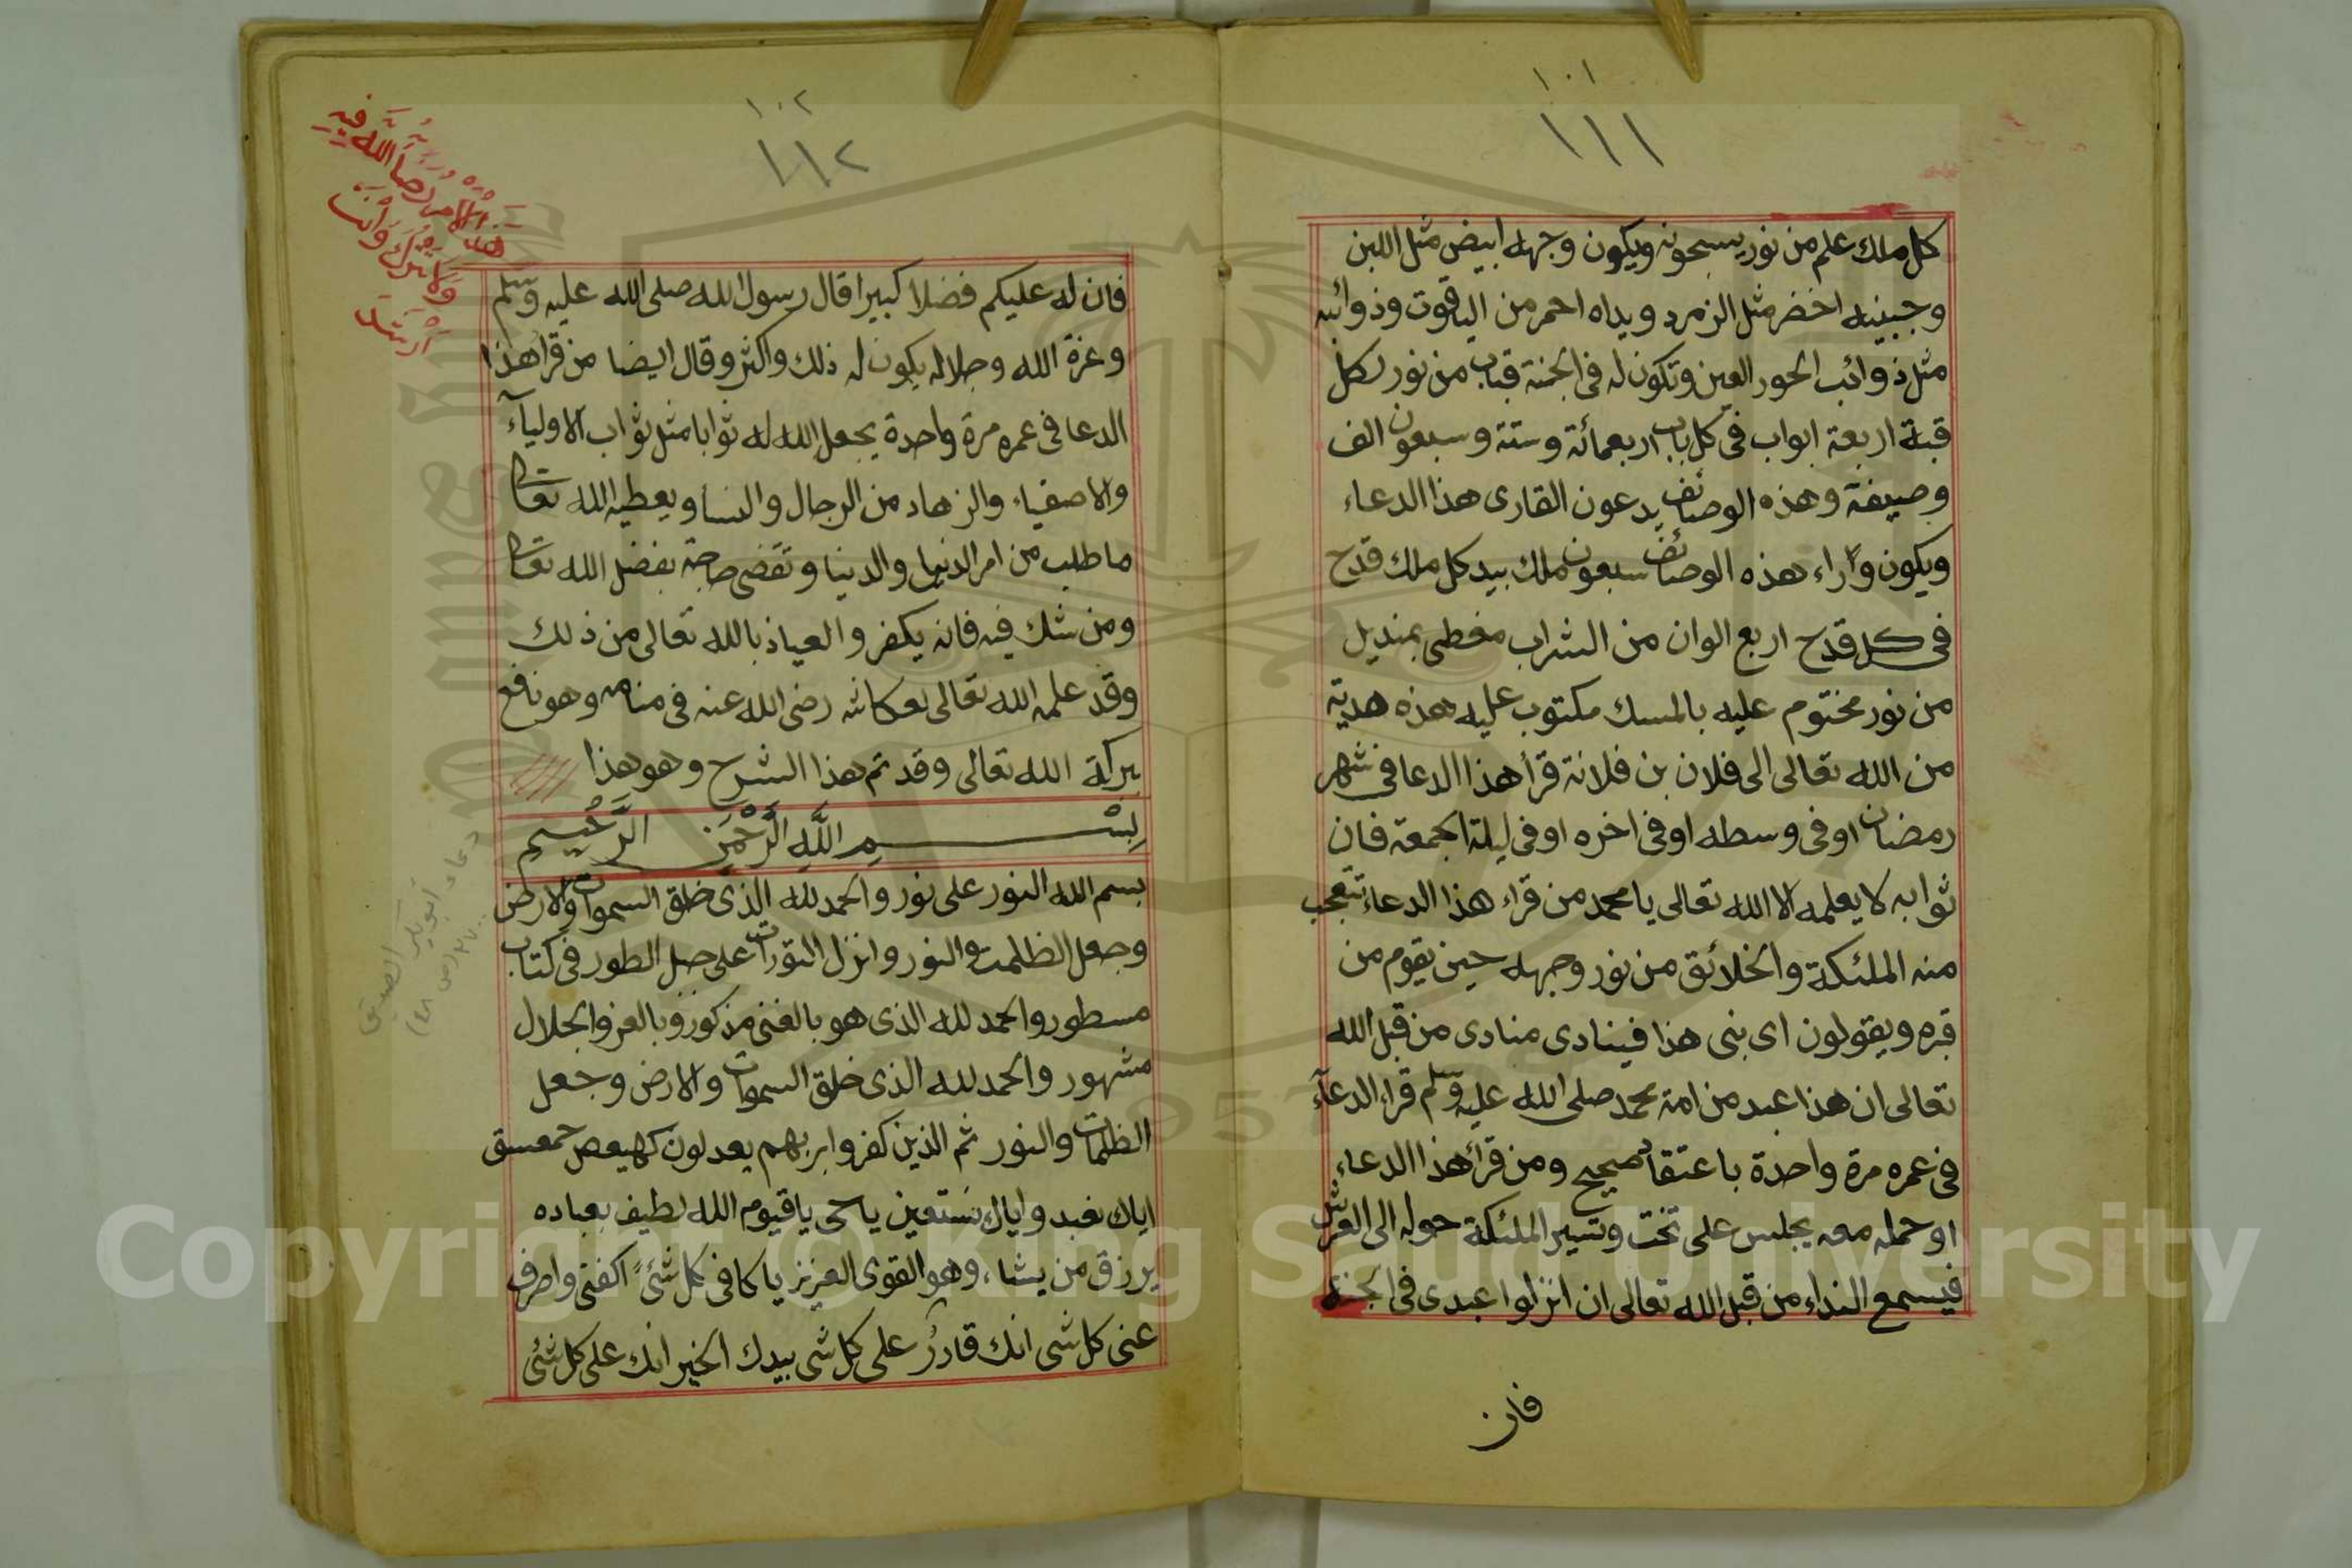 ١٠١
١١١
كل ملك علم من نور يسبحونه ويكون وجهه ابيض مثل اللبن
وجبينه اخضر مثل الزمرد ويداه احمر من الياقوت وذوائبه
مثل ذوائب الحور العين وتكون له فى الجنة قباب من نور لكل
قبة اربعة ابواب فى كل باب اربعمائة وستة وسبعون الف
وصيفة وهذه الوصائف يدعون القارى هذا الدعاء
ويكون وراء هذه الوصائف سبعون ملك بيد كل ملك قدح
فى كل قدح اربع الوان من الشراب مغطى بمنديل
من نور مختوم عليه بالمسك مكتوب عليه هذه هدية
من الله تعالى الى فلان بن فلانة قرأ هذا الدعا فى شهر
رمضان او فى وسطه او فى اخره او فى ليلة الجمعة فان
ثوابه لا يعلمه الا الله تعالى يا محمد من قراء هذا الدعاء تتعجب
منه الملئكة والخلائق من نور وجهه حين يقوم من
قبره ويقولون اى بنى هذا فينادى منادى من قبل الله
تعالى ان هذا عبد من امة محمد صلى الله عليه وسلم قراء الدعآء
فى عمره مرة واحدة باعتقاد صحيح ومن قرأ هذا الدعاء
او حمله معه يجلس على تخت وتسير الملئكة حوله الى العرش
فيسمع النداء من قبل الله تعالى ان انزلوا عبدى فى الجنة
فان
١٠٢
١١٢
فان له عليكم فضلا كبيرا قال رسول الله صلى الله عليه وسلم
وعزة الله وجلاله يكون له ذلك واكثر وقال ايضا من قرأ هذا
الدعا فى عمره مرة واحدة يجعل الله له ثوابا مثل ثواب الاوليآء
والاصفياء والزهاد من الرجال والنسأ ويعطيه الله تعالى
ما طلب من امر الدنيا والدينا وتقضى حاجته بفضل الله تعالى
ومن شك فيه فانه يكفر والعياذ بالله تعالى من ذلك
وقد علمه الله تعالى لعكاشه رضى الله عنه فى منامه وهو نافع
ببركة الله تعالى وقد تم هذا الشرح وهو هذا
بِسْمِ اللَّهِ الرَّحْمَنِ الرَّحِيمِ
بسم الله النور على نور والحمد لله الذى خلق السموات والارض
وجعل الظلمت والنور وانزل التورات على جبل الطور فى كتاب
مسطور والحمد لله الذى هو بالغنى مذكور وبالعز والجلال
مشهور والحمد لله الذى خلق السموات والارض وجعل
الظلمات والنور ثم الذين كفروا بربهم يعدلون كهيعص حمعسق
اياك نعبد واياك نستعين يا حى يا قيوم الله لطيف بعباده
يرزق من يشاء وهو القوى العزيز يا كافى كل شئ اكفنى واصرف
عنى كل شى انك قادر على كل شى بيدك الخير انك على كل شئ
دعاء ابوبكر الصديق
Copyright © King Saud University
1957